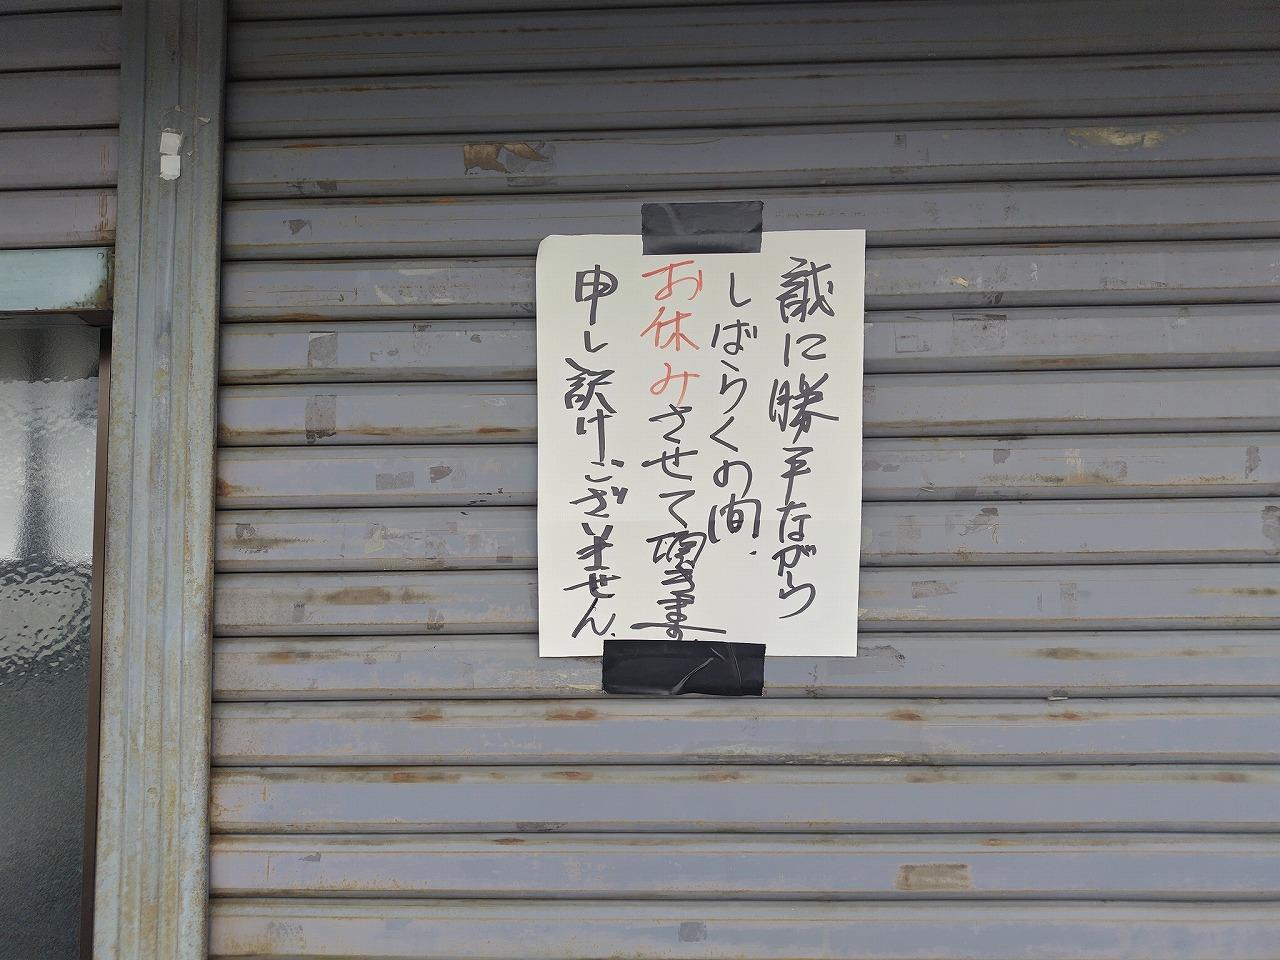 誠に勝手ながら
しばらくの間、
お休みさせて頂きます。
申し訳けございません。